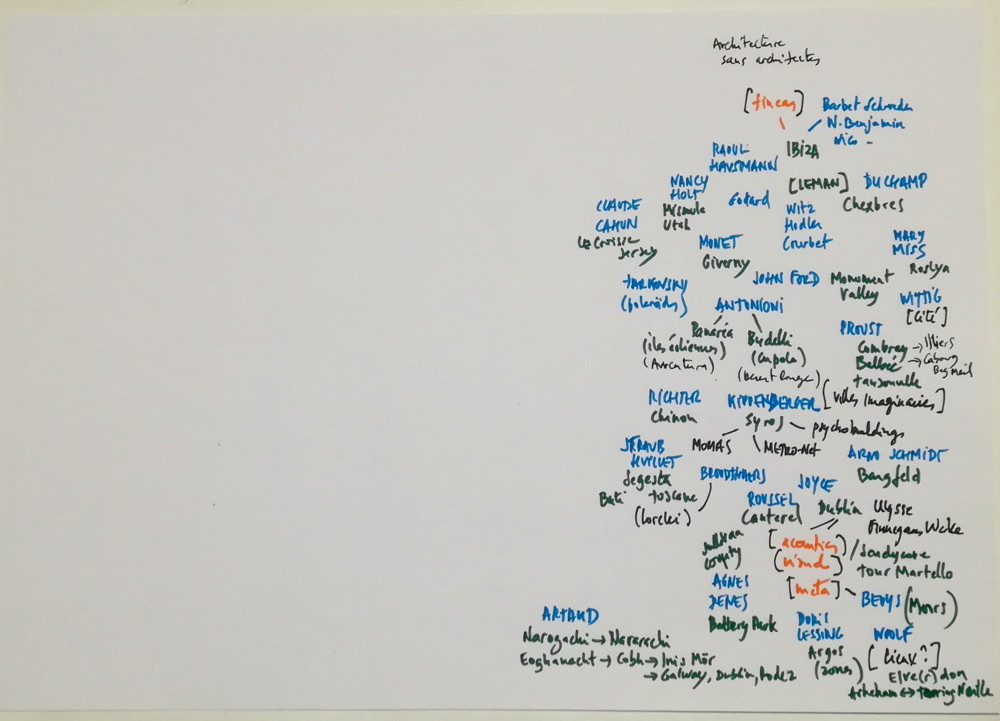 Architecture
sans architectes
[fincas]
Barbet Schroeder
W. Benjamin
Nico -
IBIZA
RAOUL
HAUSMANN
[LEMAN]
DUCHAMP
Chexbres
NANCY
HOLT
Missoula
Utah
Godard
Witz
Hodler
Courbet
CLAUDE
CAHUN
Jersey
MONET
Giverny
MARY
MISS
Roslyn
TARKOVSKY
(polaroïds)
JOHN FORD
Monument
Valley
WITTIG
[Cité]
ANTONIONI
Panaréa
(îles éoliennes)
(Avventura)
Budelli
(Cupola)
(Desert Rouge)
PROUST
Combray → Illiers
Balbec → Cabourg
Beg Meil
Tansonville
[Villes Imaginaires]
RICHTER
Chinon
KIPPENBERGER
Syros
psychobuildings
MOMAS
METRO-Net
STRAUB
HUILLET
Segesta
Buti Toscane
(Lorelei)
BROODTHAERS
ARNO SCHMIDT
Bargfeld
JOYCE
Dublin Ulysse
Finnegans Wake
ROUSSEL
Canterel
[acoustics]
(visual)
/ Sandycove
Tour Martello
Sullivan
County
[meta]
BEUYS (Moors)
AGNES
DENES
Battery Park
DORIS
LESSING
Argos
(zones)
WOOLF
[lieux?]
Elve(r)don
Asheham ↔
ARTAUD
Narogachi → Nararachi
Eoghanacht → Cobh → Inis Mór
→ Galway, Dublin, Rodez